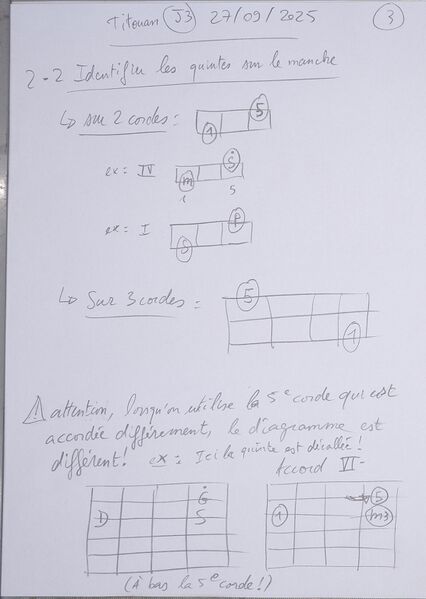 Titouan J3 27/09/2025 3
2-2 Identifier les quintes sur le manche
↳ sur 2 cordes :
5
1
ex : IV
Ṡ
m
1 5
ex : I
P
S
↳ Sur 3 cordes :
5
1
⚠ attention, lorsqu'on utilise la 5e corde qui est
accordée différement, le diagramme est
différent! ex : Ici la quinte est décallée!
Accord VI-
Ġ
D S
5
1 m3
(À bas la 5e corde!)